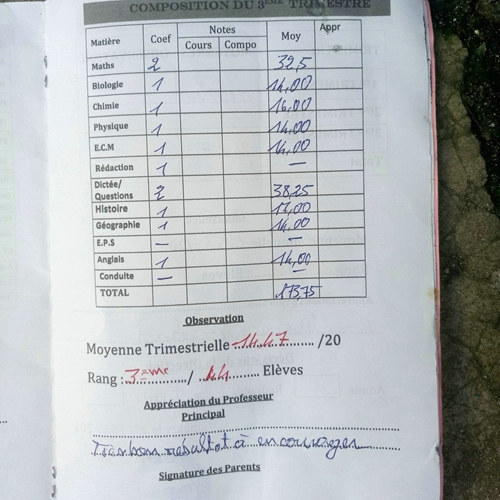 COMPOSITION DU 3ÈME TRIMESTRE
Matière Coef Notes Moy Appr
Cours Compo
Maths 2 32,5
Biologie 1 14,00
Chimie 1 16,00
Physique 1 14,00
E.C.M 1 14,00
Rédaction 1 —
Dictée/
Questions 2 38,25
Histoire 1 17,00
Géographie 1 14,00
E.P.S — —
Anglais 1 14,00
Conduite — —
TOTAL 173,75
Observation
Moyenne Trimestrielle 14.47 /20
Rang : 3ème / 44 Elèves
Appréciation du Professeur
Principal
Très bon résultat à encourager
Signature des Parents